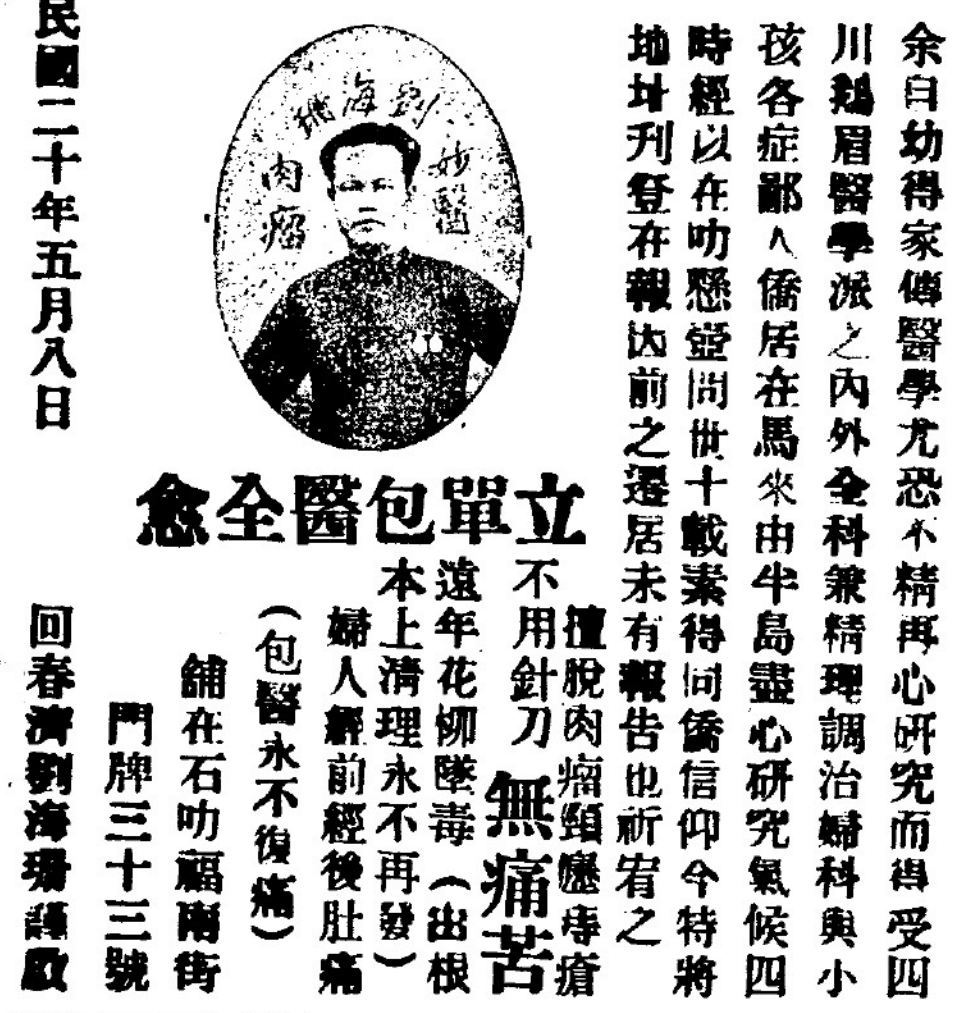 余自幼得家傳醫學尤恐不精再心研究而得受四
川鵝眉醫學派之內外全科兼精理調治婦科與小
孩各症鄙人僑居在馬來由半島盡心研究氣候四
時經以在叻懸壺問世十載素得同僑信仰今特將
地址刊登在報因前之遷居未有報告也祈宥之
劉海璣
妙醫
肉瘤
立單包醫全愈
擅脫肉瘤頸癧痔瘡
不用針刀 無痛苦
遠年花柳墜毒（出根
本上清理永不再發）
婦人經前經後肚痛
（包醫永不復痛）
舖在石叻福南街
門牌三十三號
回春濟劉海珊謹啟
民國二十年五月八日